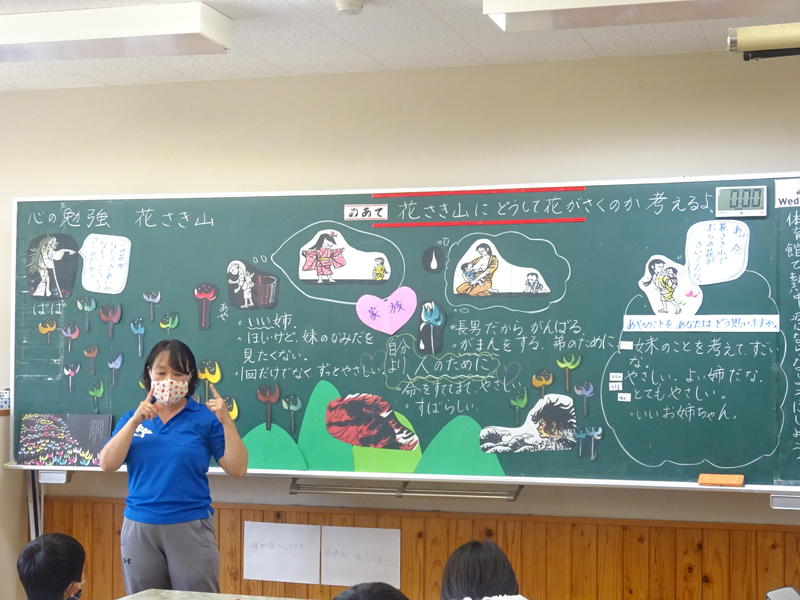 心の勉強 花さき山
めあて 花さき山に どうして花がさくのか 考えるよ。
0:00
Wed
ばば
あや
・いい姉。
・ほしいけど、妹のなみだを
見たくない。
・1回だけでなく ずっとやさしい。
家族
自分
より
人のために
・命をすててまで、やさしい。
・すばらしい。
・長男だから がんばる。
・がまんをする。弟のために、
あっ、今
花さき山で
おらの花が
さいてるな
あやのことを あなたは どう思いますか。
妹のことを考えて、すごい
な。
やさしい。よい姉だな。
とてもやさしい。
・いいお姉ちゃん。